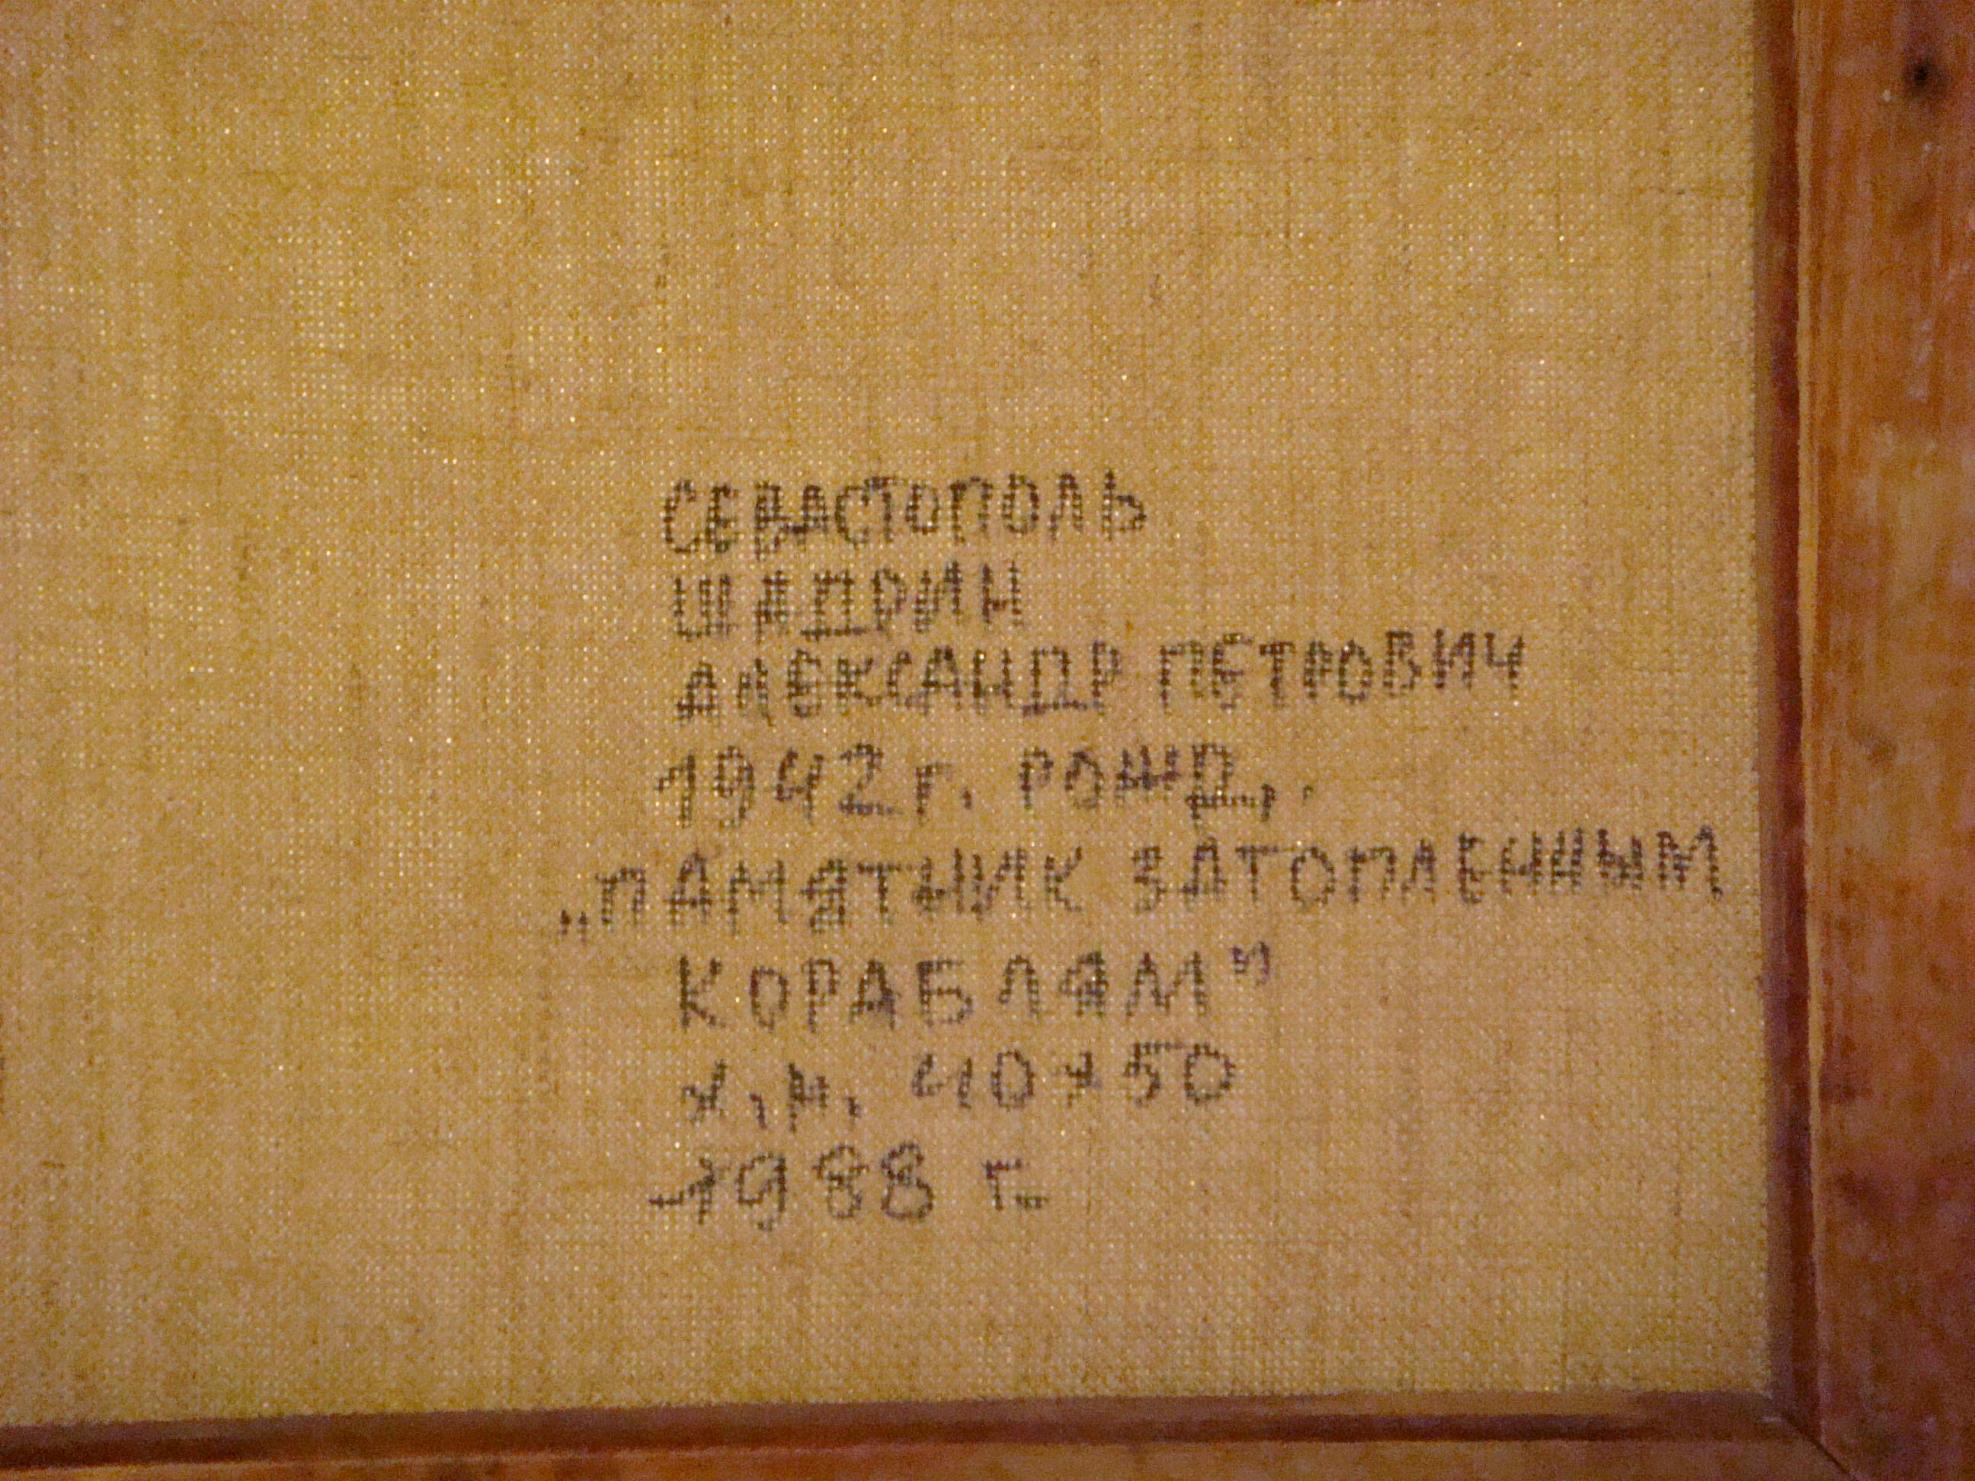 СЕВАСТОПОЛЬ
ШАДРИН
АЛЕКСАНДР ПЕТРОВИЧ
1942 г. РОЖД,.
„ПАМЯТНИК ЗАТОПЛЕННЫМ
КОРАБЛЯМ"
х.м. 40х50
1988 г.